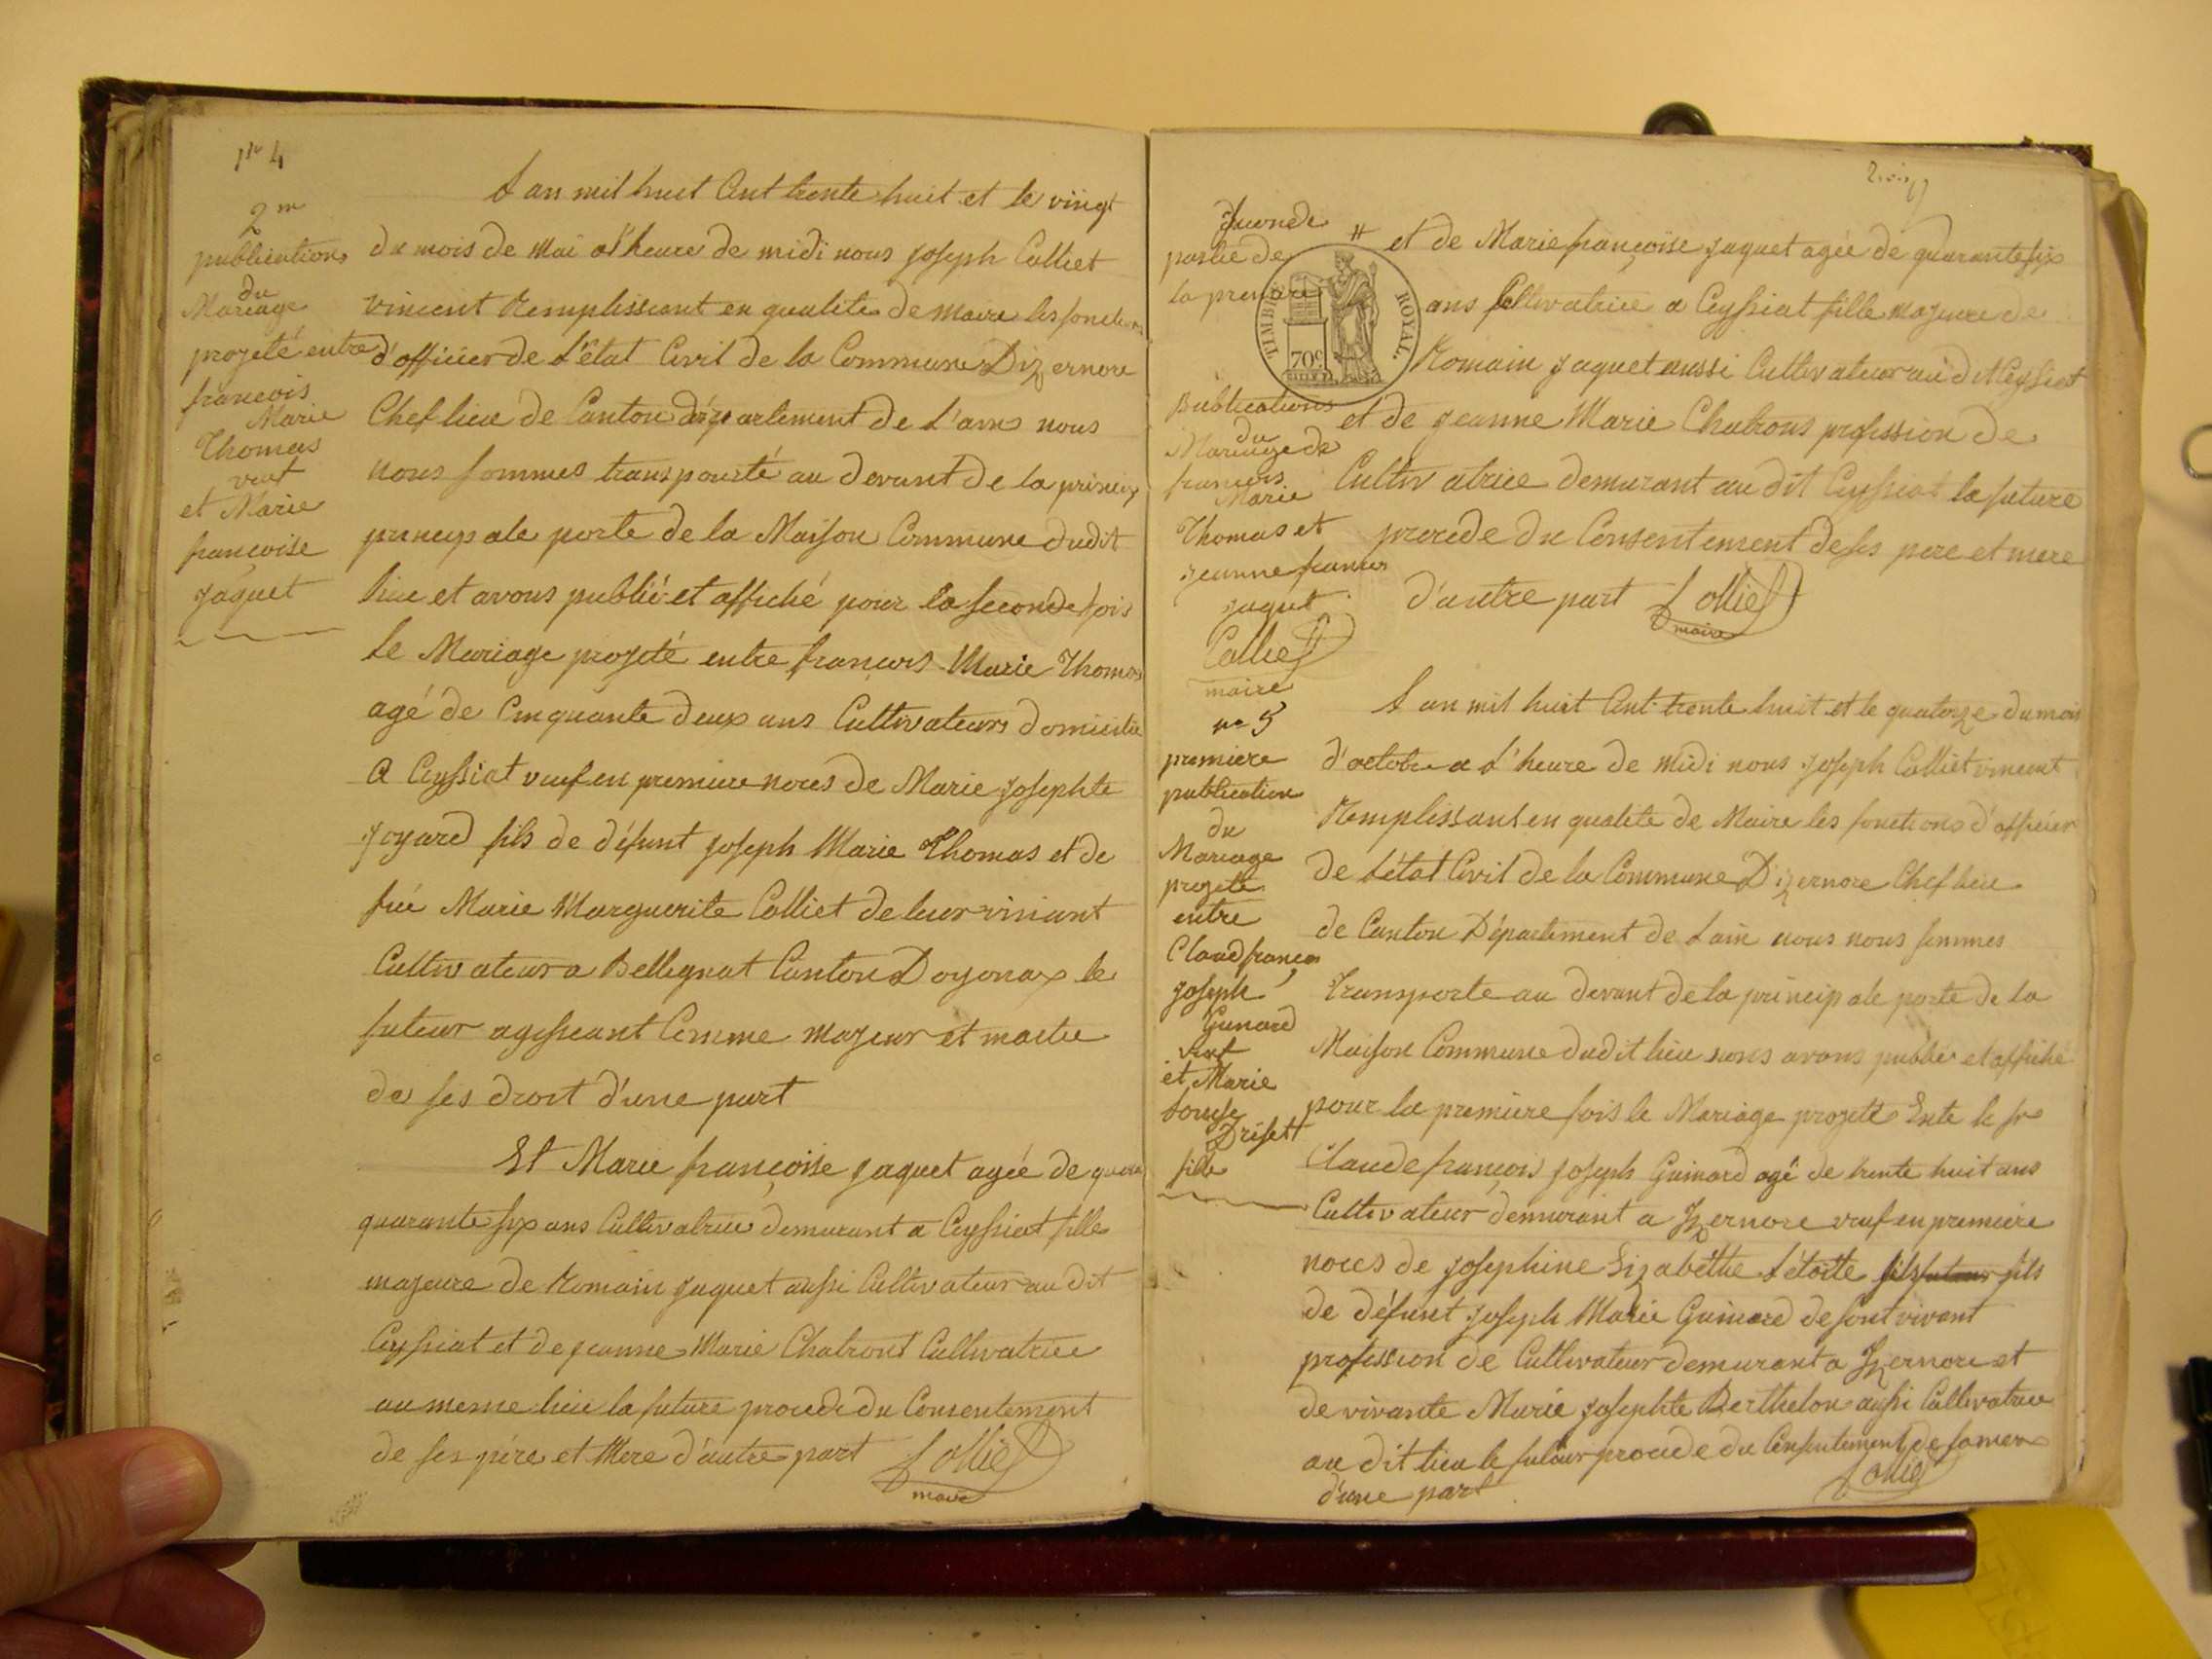 No 4
2m
publications
du
Mariage
projeté entre
francois
Marie
Thomas
veuf
et Marie
francoise
jaquet
L an mil huit Cent trente huit et le vingt
du mois de Mai a l'heure de midi nous joseph Colliet
vincent Remplissant en qualité de Maire les fonctions
d'officier de L'état Civil de la Commune Dizernore
Cheflieu de Canton département de L'ains nous
nous sommes transpourté au devant de la
principale porte de la Maison Commune dudit
lieu et avons publié et affiché pour la seconde fois
Le Mariage projeté entre francois Marie Thomas
agé de Cinquante deux ans Cultivateurs domicilié
a Ceyssiat veuf en premiere noces de Marie josephte
joyard fils de défunt joseph Marie Thomas et de
fuë Marie Marguerite Colliet de leur viviant
Cultivateurs a Bellegnat Canton Doyonax le
futeur agisseant Comme majeur et maitre
de ses droit d'une part
Et Marie francoise jaquet agée de
quarante six ans Cultivatrice demeurant a Ceyssiat fille
majeure de Romain jaquet aussi Cultivateur au dit
Ceyssiat et de jeanne Marie Chatront Cultivatrice
au meme lieu la future procede du Consentement
de ses père et Mere d'autre part Collief
maire
Seconde
partie de
la premiere
Publications
du
Mariage de
francois
Marie
Thomas et
jeanne francois
jaquet
Collief
maire
# et de Marie françoise jaquet agée de quarante six
ans Cultivatrice a Ceyssiat fille majeure de
Romain jaquet aussi Cultivateur au dit Ceyssiat
et de jeanne Marie Chatrons profession de
Cultivatrice demeurant au dit Ceyssiat la future
procede du Consentement de ses pere et mere
d'autre part Collief
maire
TIMBRE ROYAL.
70c
no 5
premiere
publication
du
Mariage
projeté
entre
Claud francois
joseph
Guinard
veuf
et Marie
Louise
fille
L an mil huit Cent trente huit et le quatorze du mois
d'octobre a L'heure de midi nous joseph Colliet vincent
Remplissant en qualité de Maire les fonctions d'officier
de L'état Civil de la Commune D'izernore Cheflieu
de Canton Département de Lain nous nous sommes
Transporte au devant de la principale porte de la
Maison Commune dudit lieu nous avons publié et affiché
pour la premiere fois le Mariage projeté Ente le sr
Claude francois joseph Guinard agé de trente huit ans
Cultivateur demeurant a Izernore veuf en premiere
noces de josephine Lizabéthe Létoite fils futeur fils
de défunt joseph Marie Guinard de son vivant
profession de Cultivateur demeurant a Izernore et
de vivante Marie josephte Berthelon aussi Cultivatrice
au dit lieu le futeur procede du Consentement de sa mere
d'une part Collief